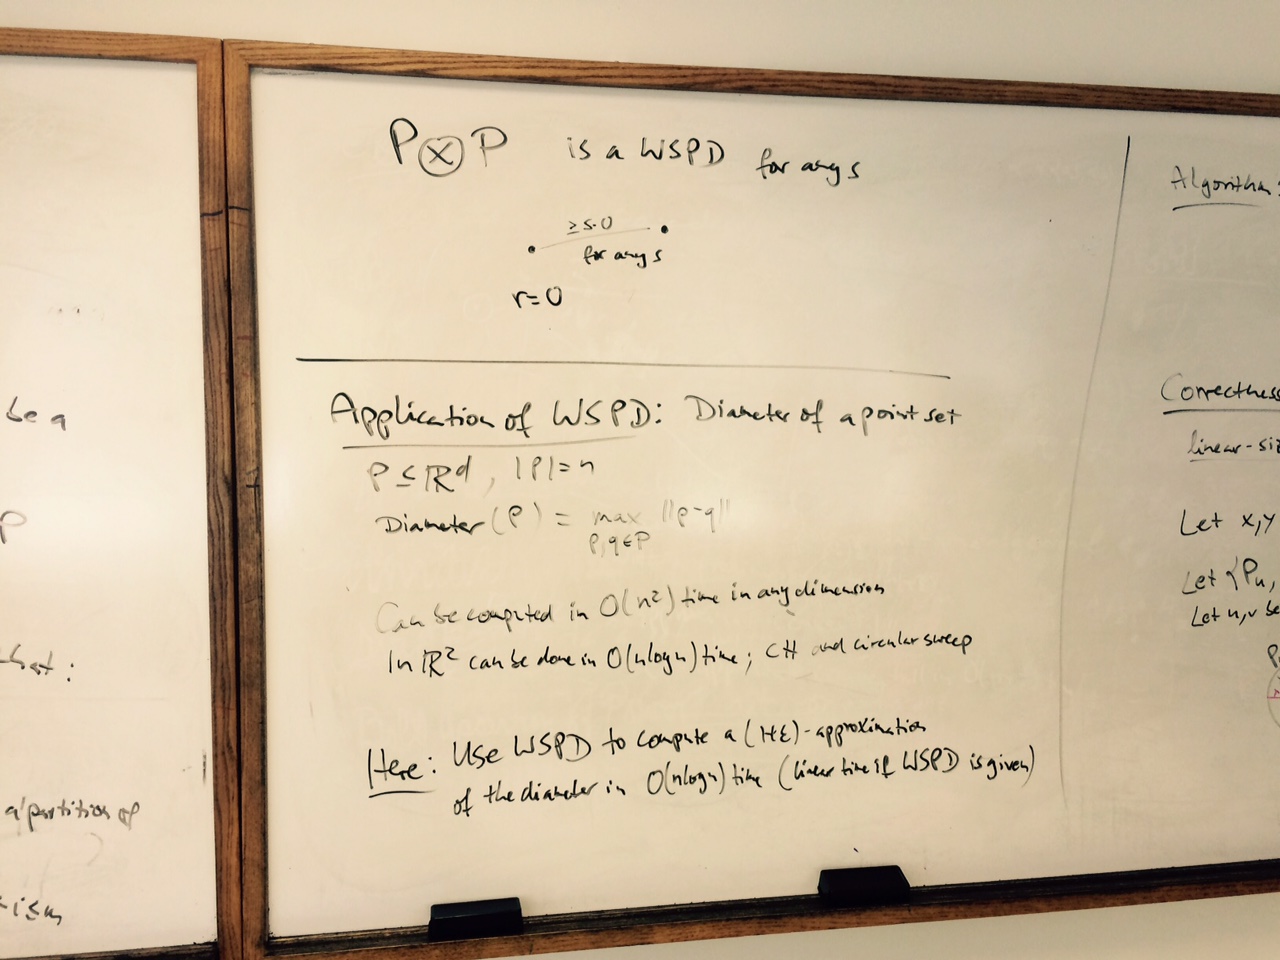 be a
P
hat:
a partition of
ism
P ⊗ P is a WSPD for any s
≥ s·0
for any s
r=0
Application of WSPD: Diameter of a point set
P ⊆ ℝᵈ, |P|=n
Diameter(P) = max ||p-q||
p,q∈P
Can be computed in O(n²) time in any dimension
In ℝ² can be done in O(nlogn) time; CH and circular sweep
Here: Use WSPD to compute a (1+ε)-approximation
of the diameter in O(nlogn) time (linear time if WSPD is given)
Algorithm:
Correctness
linear-siz
Let x,y
Let {Pu,
Let u,v be
P